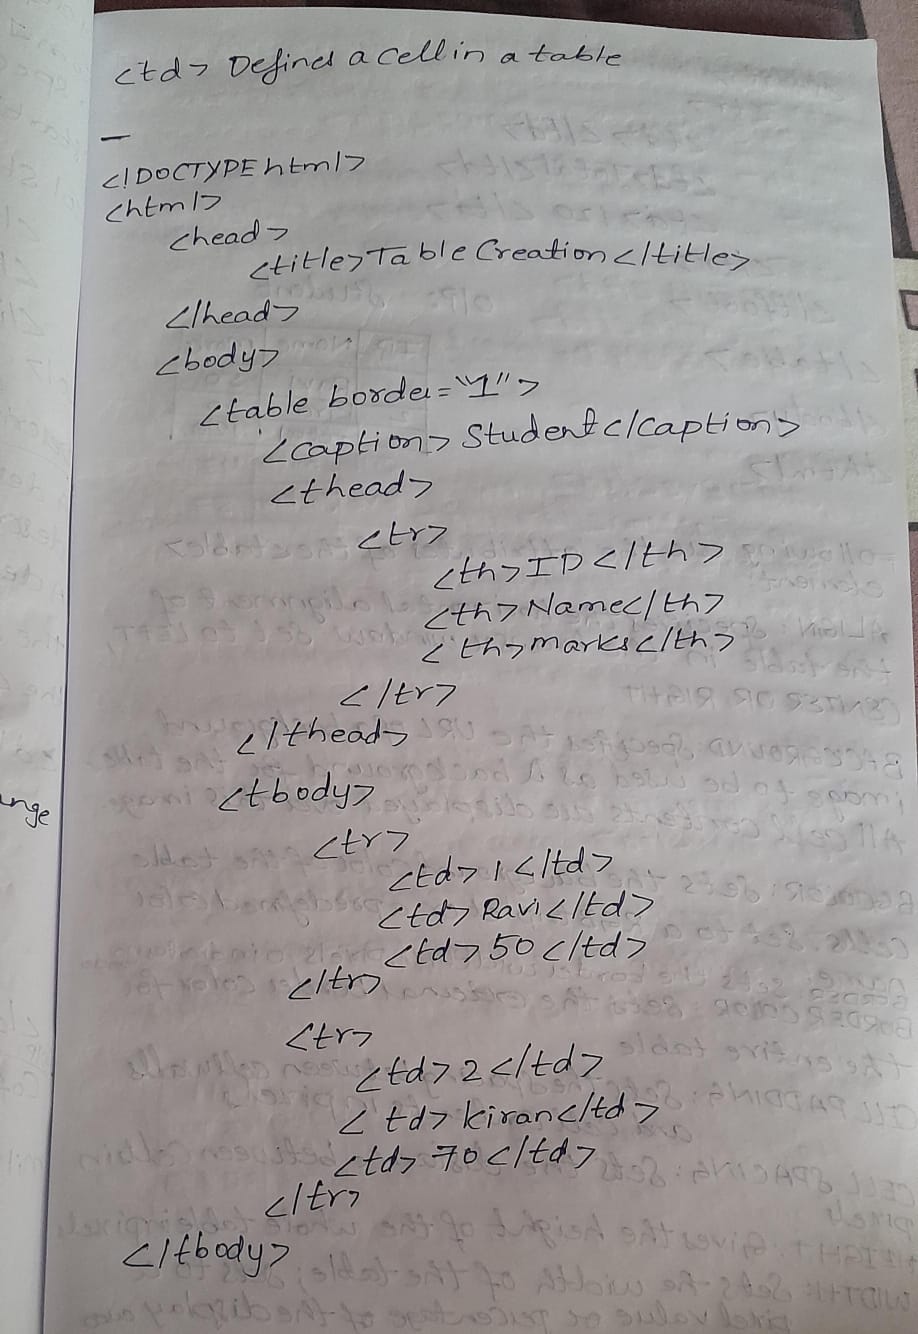 <td> Defines a cell in a table
<!DOCTYPE html>
<html>
<head>
<title>Table Creation</title>
</head>
<body>
<table border="1">
<caption>Student</caption>
<thead>
<tr>
<th>ID</th>
<th>Name</th>
<th>marks</th>
</tr>
</thead>
<tbody>
<tr>
<td>1</td>
<td>Ravi</td>
<td>50</td>
</tr>
<tr>
<td>2</td>
<td>kiran</td>
<td>70</td>
</tr>
</tbody>